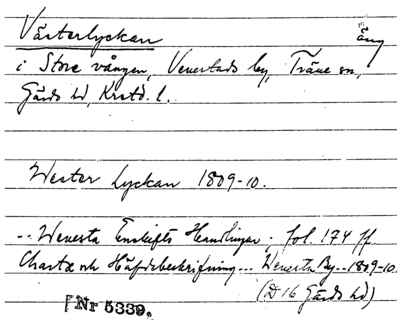 Västerlyckan äng
i Store vången, Venestads by, Träne sn,
Gärds hd, Krstd. l.
Wester Lyckan 1809-10.
-- Wenesta Enskifts Handlingar; fol. 174 ff.
Charta och Häfdebeskrifning... Wenesta By -- 1809-10.
(D 16 Gärds hd)
Nr 5339.